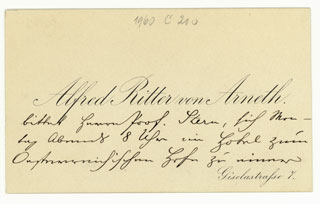 1960 C 210
Alfred Ritter von Arneth.
bittet Herrn Prof. Stern, sich Mon-
tag Abends 8 Uhr im Hotel zum
Oesterreichischen Hofe zu einem
Giselastraße 7.